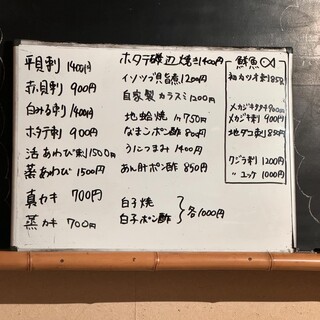 平貝刺 1400円
赤貝刺 900円
白みる刺 1400円
ホタテ刺 900円
活あわび刺 1500円
蒸あわび 1500円
真カキ 700円
蒸カキ 700円
ホタテ磯辺焼き 1400円
イソツブ貝旨煮 1200円
自家製カラスミ 1200円
地蛤焼 1ヶ750円
なまこポン酢 800円
うにつまみ 1400円
あん肝ポン酢 850円
白子焼
白子ポン酢
各1000円
鮮魚
初カツオ刺 1850
メカジキ刺 900円
地ダコ刺 850円
クジラ刺 1200円
〃 ユッケ 1000円